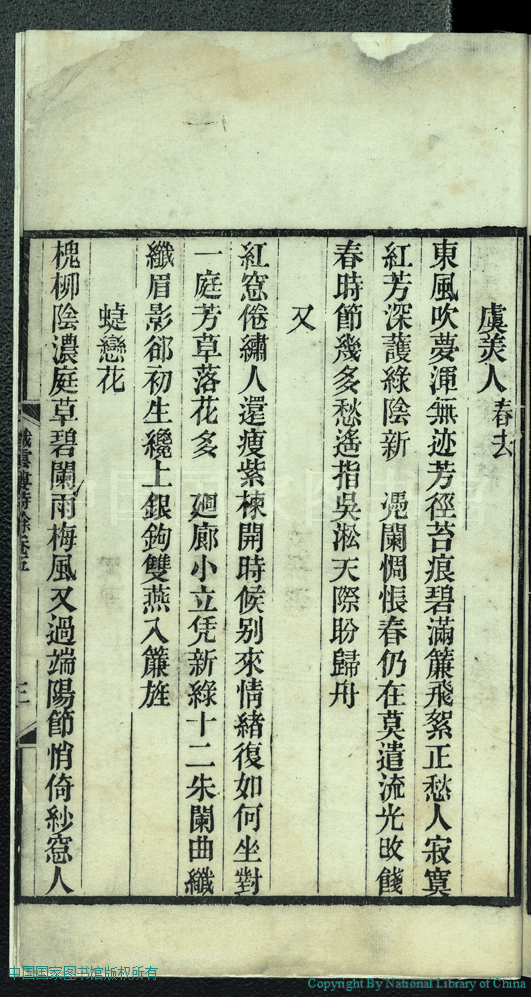 虞美人春去
東風吹夢渾無迹芳徑苔痕碧滿簾飛絮正愁人寂寞
紅芳深護綠陰新　憑闌惆悵春仍在莫遣流光改餞
春時節幾多愁遙指吳淞天際盼歸舟
又
紅窓倦繡人還瘦紫楝開時候别來情緒復如何坐對
一庭芳草落花多　廻廊小立凭新綠十二朱闌曲纖
纖眉影郤初生纔上銀鉤雙燕入簾旌
蜨戀花
槐柳陰濃庭草碧闌雨梅風又過端陽節悄倚紗窓人
詩餘卷五
三
中国国家图书馆版权所有
Copyright By National Library of China